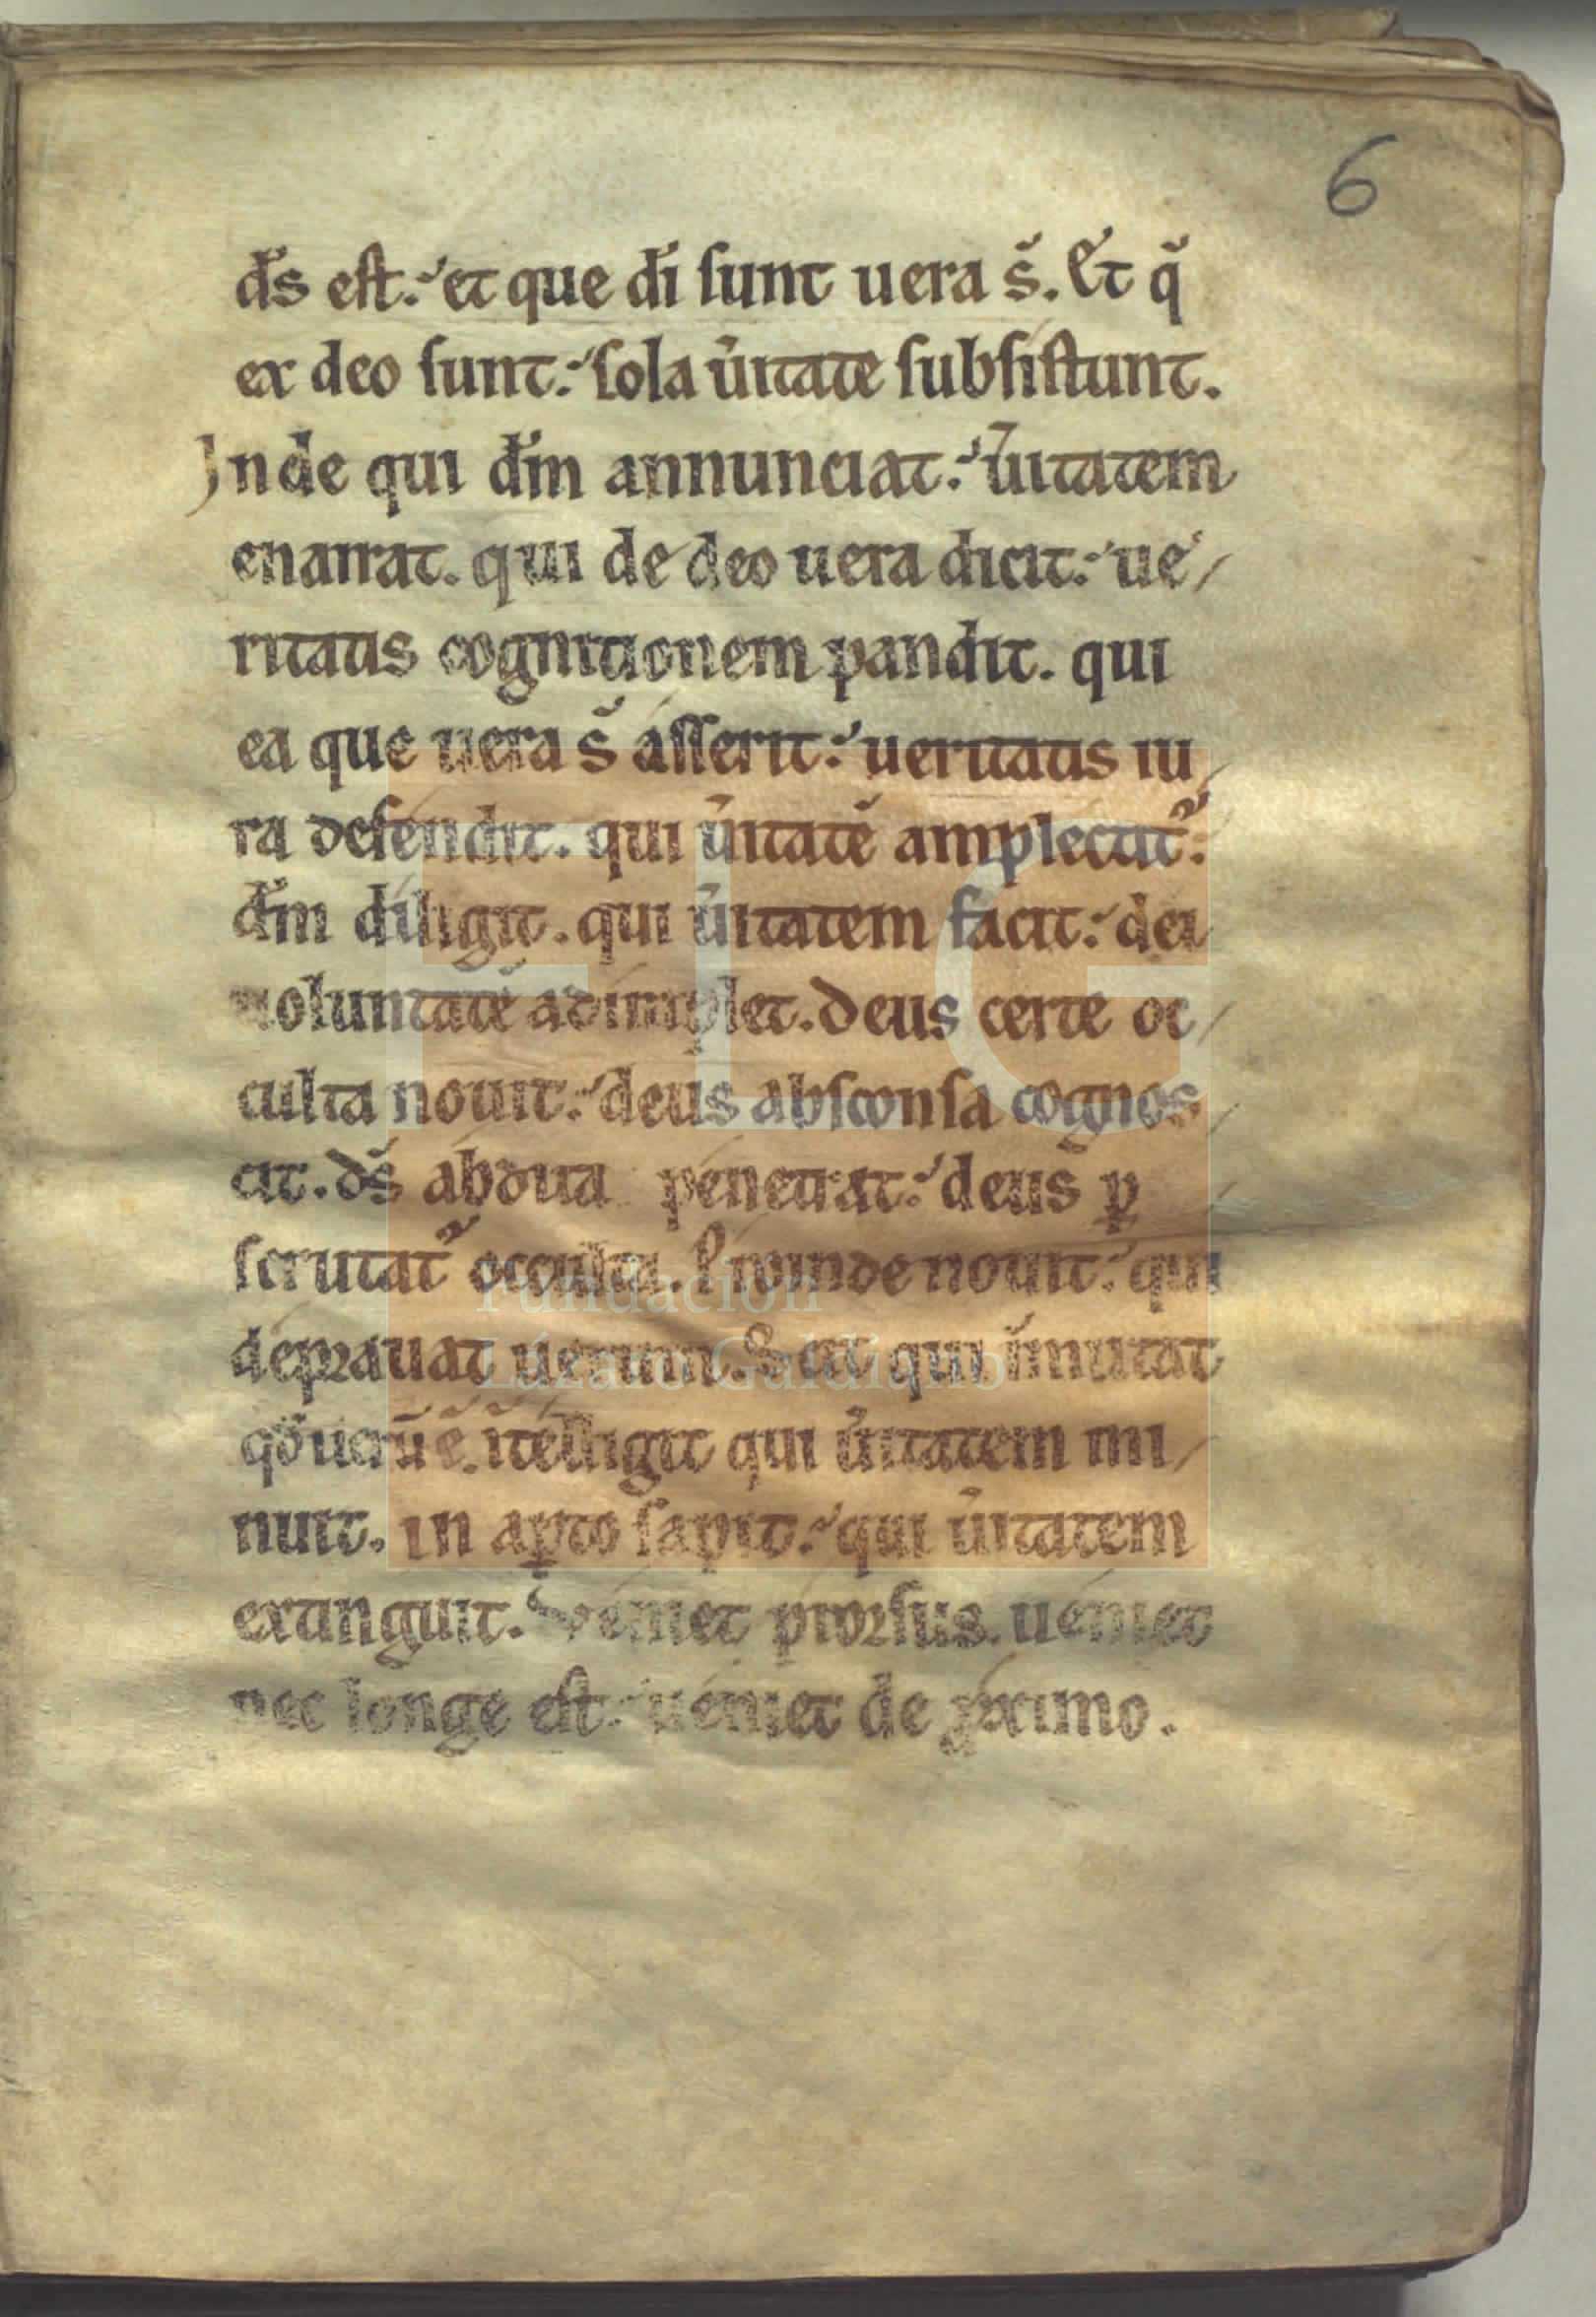 6
d̄s est. et que dī sunt uera s̄. Et q̄
ex deo sunt. sola ūitate subsistunt.
Inde qui dm̄ annunciat. ūitatem
enarrat. qui de deo uera dicit. ue
ritatis cognitionem pandit. qui
ea que uera s̄ asserit. ueritatis iu
ra defendit. qui ūitatē amplectit᷑.
dm̄ diligit. qui ūitatem facit. dei
uoluntatē adimplet. deus certe oc
culta nouit. deus absconsa cognos
cit. ds̄ abdita penetrat. deus ꝑ
scrutat᷑ occulta. Proinde nouit. qui
deprauat uerum. Scit qui īmutat
qđ uerū ē. ītelligit qui ūitatem mi
nuit. in aꝑto sapit. qui ūitatem
extinguit. Veniet prorsus. ueniet
nec longe est. ueniet de ꝓximo.
Fundación
Lázaro Galdiano